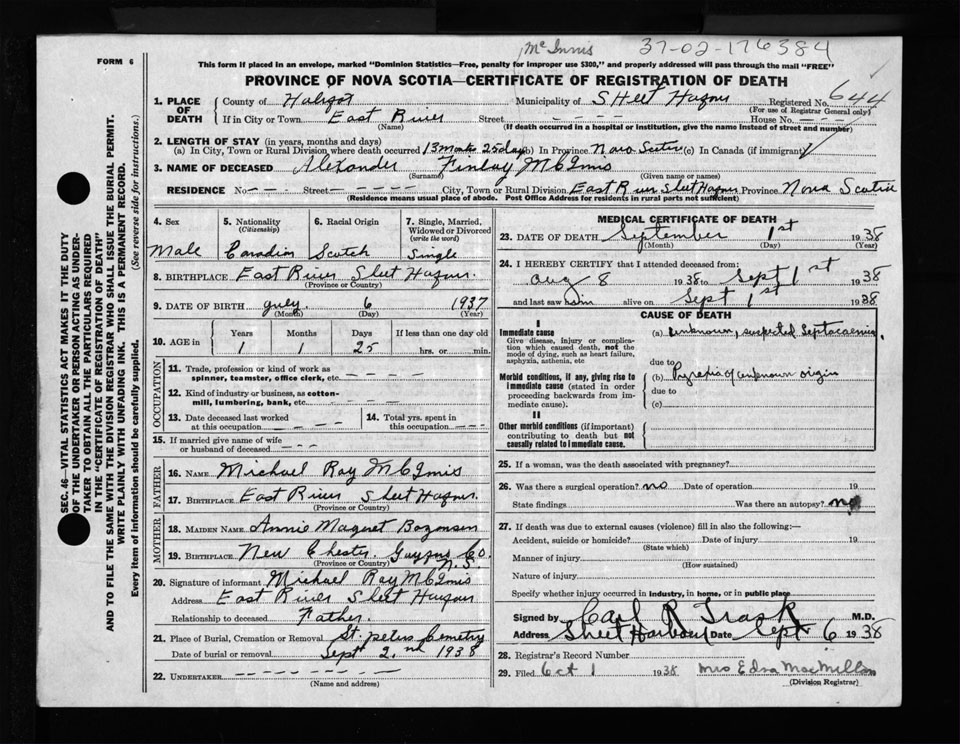 Mc Innis
37-02-176384
FORM 6
This form if placed in an envelope, marked "Dominion Statistics—Free, penalty for improper use $300," and properly addressed will pass through the mail "FREE"
PROVINCE OF NOVA SCOTIA—CERTIFICATE OF REGISTRATION OF DEATH
644
1. PLACE OF DEATH
County of Halifax Municipality of SHeet Harbour Registered No.
(For use of Registrar General only)
If in City or Town East River Street - - - - - House No. - - -
(Name) (If death occurred in a hospital or institution, give the name instead of street and number)
2. LENGTH OF STAY (in years, months and days)
(a) In City, Town or Rural Division where death occurred 13 Months 25 days (b) In Province Nova Scotia (c) In Canada (if immigrant)
3. NAME OF DECEASED Alexander Finlay McInnis
(Surname) (Given name or names)
RESIDENCE No. - - - Street - - - - - City, Town or Rural Division East River Sheet Harbour Province Nova Scotia
(Residence means usual place of abode. Post Office Address for residents in rural parts not sufficient)
4. Sex
Male
5. Nationality
(Citizenship)
Canadian
6. Racial Origin
Scotch
7. Single, Married, Widowed or Divorced
(write the word)
Single
8. BIRTHPLACE East River Sheet Harbour
(Province or Country)
9. DATE OF BIRTH July 6 1937
(Month) (Day) (Year)
10. AGE in
Years Months Days If less than one day old
1 1 25 hrs. or min.
OCCUPATION
11. Trade, profession or kind of work as spinner, teamster, office clerk, etc. - - - -
12. Kind of industry or business, as cotton-mill, lumbering, bank, etc. - - - -
13. Date deceased last worked at this occupation - - - -
14. Total yrs. spent in this occupation - - -
15. If married give name of wife or husband of deceased - - -
FATHER
16. NAME Michael Ray McInnis
17. BIRTHPLACE East River Sheet Harbour
MOTHER
18. MAIDEN NAME Annie Margret
19. BIRTHPLACE New Chester Guys Co. N.S.
(Province or Country)
20. Signature of informant Michael Ray McInnis
Address East River Sheet Harbour
Relationship to deceased Father.
21. Place of Burial, Cremation or Removal St. peters Cemetry
Date of burial or removal Sept 2nd 1938
22. UNDERTAKER - - - - -
(Name and address)
MEDICAL CERTIFICATE OF DEATH
23. DATE OF DEATH September 1st 1938
(Month) (Day) (Year)
24. I HEREBY CERTIFY that I attended deceased from:
Aug 8 1938 to Sept 1st 1938
and last saw him alive on Sept 1st 1938
CAUSE OF DEATH
I
Immediate cause
Give disease, injury or complication which caused death, not the mode of dying, such as heart failure, asphyxia, asthenia, etc
(a) unknown, suspected Septacaemia
due to
Morbid conditions, if any, giving rise to immediate cause (stated in order proceeding backwards from immediate cause).
(b) Pyrexia of unknown origin
due to
(c)
II
Other morbid conditions (if important) contributing to death but not causally related to immediate cause.
25. If a woman, was the death associated with pregnancy?
26. Was there a surgical operation? no Date of operation 19
State findings Was there an autopsy? no
27. If death was due to external causes (violence) fill in also the following:—
Accident, suicide or homicide? Date of injury 19
(State which)
Manner of injury
(How sustained)
Nature of injury
Specify whether injury occurred in industry, in home, or in public place
Signed by Carl R Trask M.D.
Address Sheet Harbour Date Sept 6 1938
28. Registrar's Record Number
29. Filed Oct 1 1938 Mrs Edna MacMillan
(Division Registrar)
SEC. 46—VITAL STATISTICS ACT MAKES IT THE DUTY
OF THE UNDERTAKER OR PERSON ACTING AS UNDER-
TAKER TO OBTAIN ALL THE PARTICULARS REQUIRED
IN THE "CERTIFICATE OF REGISTRATION OF DEATH"
AND TO FILE THE SAME WITH THE DIVISION REGISTRAR WHO SHALL ISSUE THE BURIAL PERMIT.
WRITE PLAINLY WITH UNFADING INK. THIS IS A PERMANENT RECORD.
Every item of information should be carefully supplied. (See reverse side for instructions.)